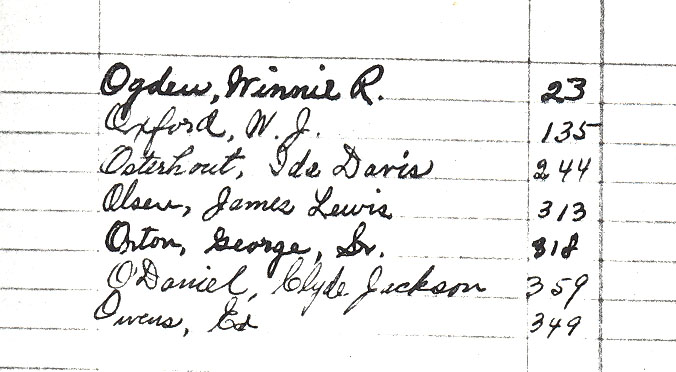 Ogden, Winnie R. 23
Oxford, W. J. 135
Osterhout, Ida Davis 244
Olsen, James Lewis 313
Orton, George, Sr. 318
O'Daniel, Clyde Jackson 359
Owens, Ed 349